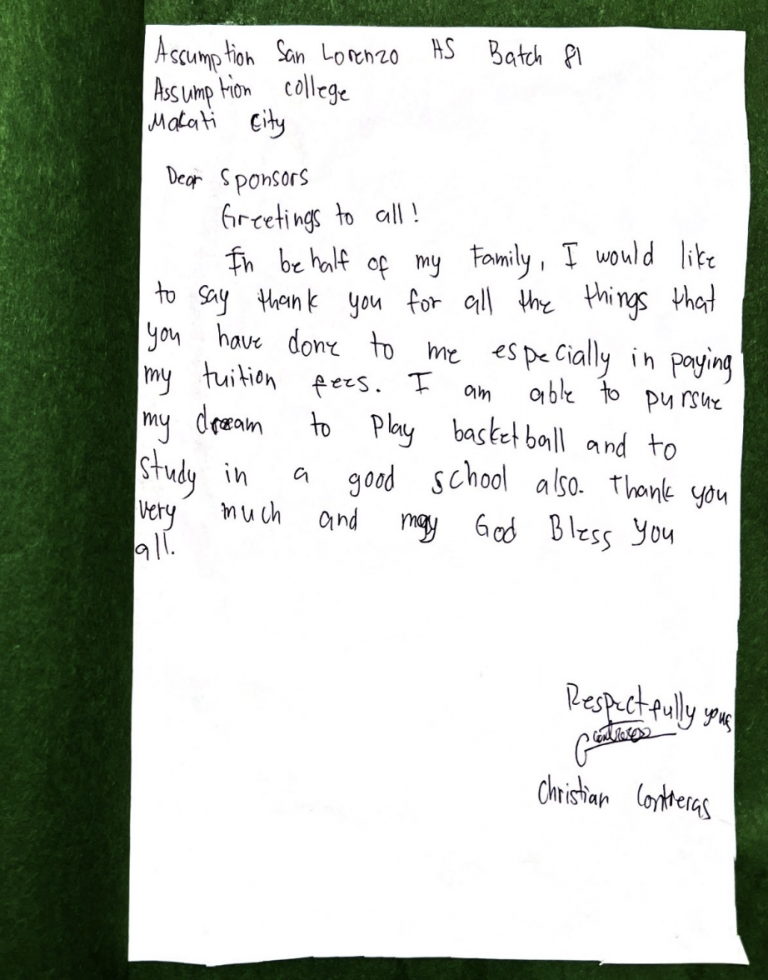 Assumption San Lorenzo HS Batch 81
Assumption college
Makati City
Dear Sponsors
Greetings to all!
In behalf of my Family, I would like
to say thank you for all the things that
you have done to me especially in paying
my tuition fees. I am able to pursue
my dream to play basketball and to
study in a good school also. Thank you
very much and may God Bless you
all.
Respectfully yours
Contreras
Christian Contreras